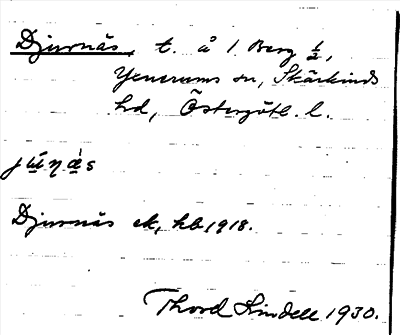 Djurnäs, t. å 1 Berg ½,
Yxnerums sn, Skärkinds
hd, Östergötl. l.
Djurnäs ek, hb 1918.
Thord Lindell 1930.